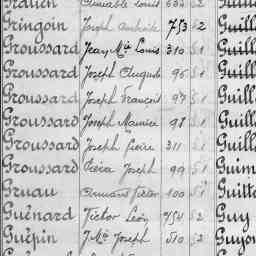 Gringoin Joseph 753 52 Guill
Groussard Jean Mie Louis 310 51 Guill
Groussard Joseph Auguste 96 51 Guill
Groussard Joseph François 97 51 Guill
Groussard Joseph Maurice 98 51 Guill
Groussard Joseph Pierre 311 51 Guill
Groussard Pierre Joseph 99 51 Guim
Gruau Armand Victor 100 51 Guitt
Guénard Victor Léon 754 52 Guy
Guépin J Mie Joseph 510 52 Guyo